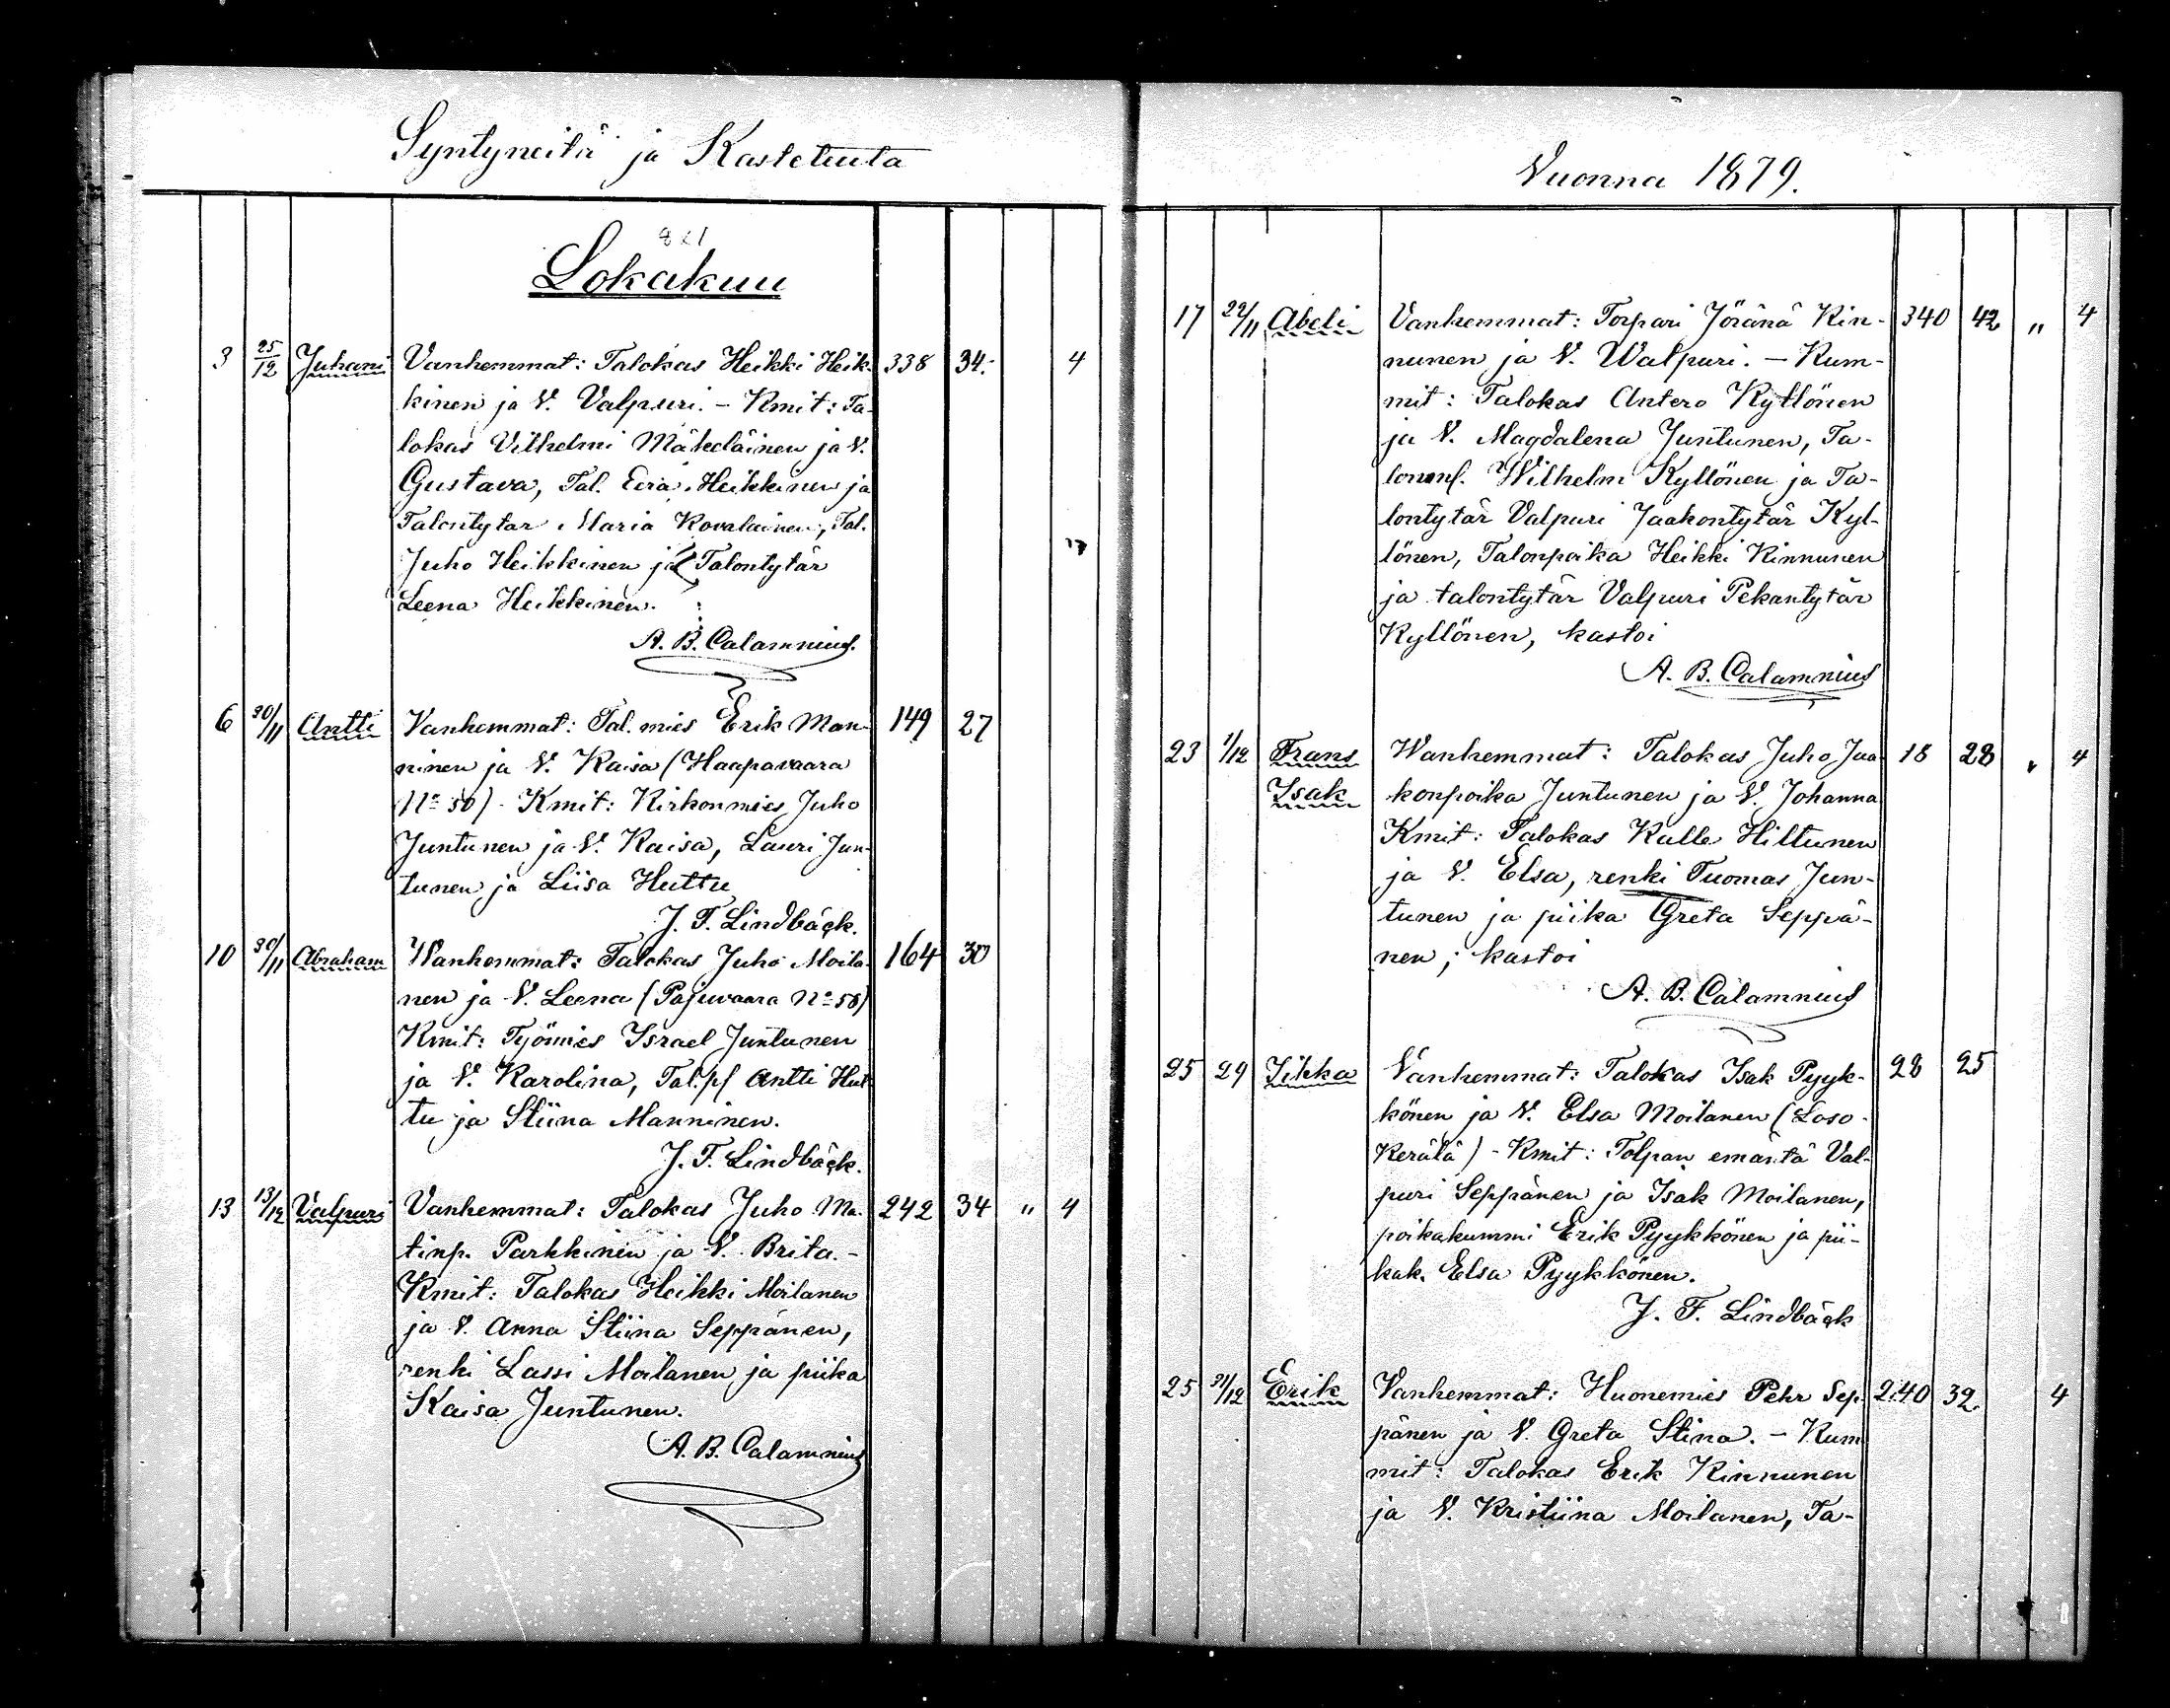 Syntyneitä ja Kastetuuta
821
Lokakuu
3 25/12 Juhani Vanhemmat: Talokas Heikki Heik- 338 34. 4
kinen ja V. Valpuri. - Kmit: Ta-
lokas Vilhelmi Mäkeläinen ja V.
Gustava, Tal. Eerā Heikkinen ja
Talontytar Maria Kovalainen, Tal.
Juho Heikkinen ja Talontytär
Leena Heikkinen.
A. B. Calamnius.
6 30/11 Antti Vanhemmat: Tal. mies Erik Man- 149 27
ninen ja V. Kaisa (Haapavaara
No 50) - Kmit: Kirkonmies Juho
Juntunen ja V. Kaisa, Lauri Jun-
tunen ja Liisa Huttu
J. F. Lindbäck.
10 30/11 Abraham Wanhemmat: Talokas Juho Moila- 164 30
nen ja V. Leena (Pajuvaara No 58)
Kmit: Työmies Israel Juntunen
ja V. Karolina, Tal. p/ Antti Hut-
tu ja Stiina Manninen.
J. F. Lindbäck.
13 13/12 Valpuri Vanhemmat: Talokas Juho Ma- 242 34 " 4
tinp. Parkkinen ja V. Brita. -
Kmit: Talokas Heikki Moilanen
ja V. Anna Stiina Seppänen,
renki Lassi Moilanen ja piika
Kaisa Juntunen.
A. B. Calamnius
Vuonna 1879.
17 22/11 Abeli Vanhemmat: Torpari Jöränä Kin- 340 42 " 4
nunen ja V. Walpuri. - Kum-
mit: Talokas Antero Kyllönen
ja V. Magdalena Juntunen, Ta-
lonm. Wilhelm Kyllönen ja Ta-
lontytär Valpuri Jaakontytär Kyl-
lönen, Talonpoika Heikki Kinnunen
ja talontytär Valpuri Pekantytär
Kyllönen, kastoi
A. B. Calamnius
23 1/12 Frans Wanhemmat: Talokas Juho Jaa- 18 28 " 4
Isak konpoika Juntunen ja V. Johanna
Kmit: Talokas Kalle Hiltunen
ja V. Elsa, renki Tuomas Jun-
tunen ja piika Greta Seppä-
nen; kastoi
A. B. Calamnius
25 29 Iikka Vanhemmat: Talokas Isak Pyyk- 28 25
könen ja V. Elsa Moilanen (Loso-
Kerälä) - Kmit: Tolpan emäntä Val-
puri Seppänen ja Isak Moilanen,
poikakummi Erik Pyykkönen ja pii-
kak. Elsa Pyykkönen.
J. F. Lindbäck
25 31/12 Erik Vanhemmat: Huonemies Pehr Sep- 240 32. 4
pänen ja V. Greta Stina. - Kum
mit: Talokas Erik Kinnunen
ja V. Kristiina Moilanen, Ta-